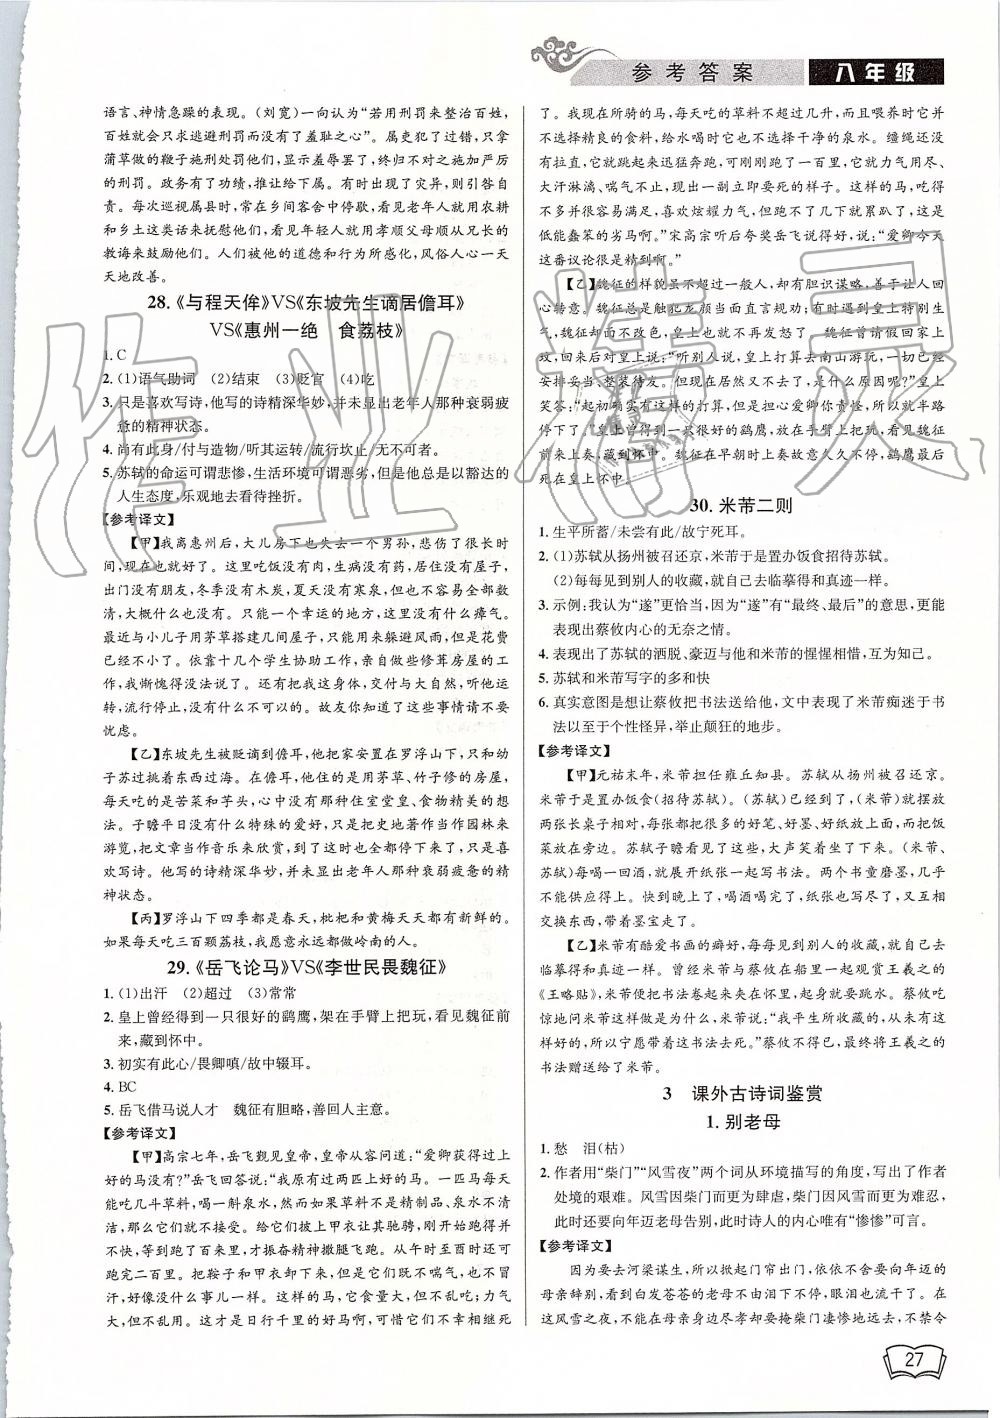 参考答案 八年级
语言、神情急躁的表现。(刘宽)一向认为“若用刑罚来整治百姓,
百姓就会只求逃避刑罚而没有了羞耻之心”。属吏犯了过错,只拿
蒲草做的鞭子施刑处罚他们,显示羞辱罢了,终归不对他们施加严厉
的刑罚。政务有了功绩,推让给下属。有时出现了灾异,则引咎自
责。每次巡视属县时,常在乡间客舍中停歇,看见老年人就用农耕
和乡土这类话来抚慰他们,看见年轻人就用孝顺父母顺从兄长的
教诲来鼓励他们。人们被他的道德和行为所感化,风俗人心一天
天地改善。
28.《与程天侔》VS《东坡先生谪居儋耳》
VS《惠州一绝 食荔枝》
1. C
2. (1)语气助词 (2)结束 (3)贬官 (4)吃
3. 只是喜欢写诗,他写的诗精深华妙,并未显出老年人那种衰弱疲
惫的精神状态。
4. 尚有此身/付与造物/听其运转/流行坎止/无不可者。
5. 苏轼的命运可谓悲惨,生活环境可谓恶劣,但是他总是以豁达的
人生态度,乐观地去看待挫折。
【参考译文】
【甲】我离惠州后,大儿房下也失去一个男孙,悲伤了很长时
间,现在也就好了。这里吃饭没有肉,生病没有药,居住没有屋子,
出门没有朋友,冬季没有木炭,夏天没有寒泉,但也不容易全部数
清,大概什么也没有。只能一个幸运的地方,这里没有什么瘴气。
最近与小儿子用茅草搭建几间屋子,只能用来躲避风雨,但是花费
已经不小了。依靠十几个学生协助工作,亲自做些修葺房屋的工
作,我惭愧得没法说了。还有把我这身体,交付与大自然,听他运
转,流行停止,没有什么不可以。故友你知道了这些事情请不要
忧虑。
【乙】东坡先生被贬谪到儋耳,他把家安置在罗浮山下,只和幼
子苏过挑着担来东渡过海。在儋耳,他住的是用茅草、竹子修的房屋,
每天吃的是苦菜和芋头,心中没有那种住室堂皇、食物精美的想
法。子瞻平日没有什么特殊的爱好,只是把史地著作当作园林来
游览,把文章当作音乐来欣赏,到了这个时候,这些也都没有了。只是喜
欢写诗。他写的诗精深华妙,并未显出老年人那种衰弱疲惫的精
神状态。
【丙】罗浮山下四季都是春天,枇杷和黄梅天天都有新鲜的。
如果每天吃三百颗荔枝,我愿意永远都做岭南的人。
29.《岳飞论马》VS《李世民畏魏征》
1. (1)出汗 (2)超过 (3)常常
2. 皇上曾经得到一只很好的鹞鹰,架在手臂上把玩,看见魏征前
来,藏到怀中。
3. 初实有此心/畏卿嗔/故中辍耳。
4. BC
5. 岳飞借马说人才 魏征有胆略,善回人主意。
【参考译文】
【甲】高宗七年,岳飞觐见皇帝,皇帝从容问道:“爱卿获得过上
好的马没有?”岳飞回答说:“我原来有过两匹上好的马。一匹马每天
能吃几斗草料,喝一斛泉水,然而如果草料不是精制品、泉水不清
洁,那么它们就不接受。给它们披上甲衣让其驰骋,刚开始跑得并
不快,等到跑了百来里,才振奋精神撒腿飞跑。从中午到傍晚,还可
跑完二百里。把鞍子和甲衣卸掉,它们既不喘气,也不出
汗,好像没什么事儿一样。这样的马,它食量大,但不乱吃;力气
大,但不乱用。这才是日行千里的好马啊,可惜它们不幸相继死
了。我现在所骑的马,每天吃的草料不超过几升,而喂养时它并
不选择精良的食料,给水喝时它也不选择干净的泉水。缰绳还没
有拉直,它就跳起来迅猛奔跑,可刚刚跑了一百里,它就力气用尽、
大汗淋漓、喘气不止,现出一副立即要死的样子。这样的马,吃得
不多并很容易满足,喜欢炫耀力气,但跑不了几下就累趴了,这是
低能蠢笨的劣马啊。”宋高宗听后夸奖岳飞说得好,说:“爱卿今天
这番议论很是精到啊。”
【乙】魏征的样貌虽不超过一般人,却有胆识谋略,善于让人回
心转意。魏征总是触犯龙颜当面直言规劝;有时碰到皇上特别生
气,魏征却面不改色,皇上也就不再发怒了。魏征曾请假回家上
坟,回来后对皇上说:“听别人说,皇上打算去南山游玩,一切已经
安排妥当、整装待发。但现在居然又不去了,是什么原因呢?”皇上
笑答:“起初确实有这样的打算,但是担心爱卿你责怪,所以就半路
停下了。”皇上曾得到一只很好的鹞鹰,放在手臂上把玩,看见魏征
前来上奏,藏到怀中。魏征在早朝时上奏故意久久不停,鹞鹰最后
死在皇上怀中。
30. 米芾二则
1. 生平所蓄/未尝有此/故宁死耳。
2. (1)苏轼从扬州被召还京,米芾于是置办饭食招待苏轼。
(2)每每见到别人的收藏,就自己去临摹得和真迹一样。
3. 示例:我认为“遂”更恰当,因为“遂”有“最终、最后”的意思,更能
表现出蔡攸内心的无奈之情。
4. 表现出了苏轼的洒脱、豪迈与他和米芾的惺惺相惜,互为知己。
5. 苏轼和米芾写字的多和快
6. 真实意图是想让蔡攸把书法送给他,文中表现了米芾痴迷于书
法以至于个性怪异,举止颠狂的地步。
【参考译文】
【甲】元祐末年,米芾担任雍丘知县。苏轼从扬州被召还京。
米芾于是置办饭食(招待苏轼)。(苏轼)已经到了,(米芾)就摆放
两张长案子相对,每张都把很多的好笔、好墨、好纸放上面,而把饭
菜放在旁边。苏轼子瞻看见了这些,大声笑着就坐了。(米芾、
苏轼)每喝一回酒,就展开纸张一起写书法。两个书童磨墨,几乎
不能供应得上。快到晚上了,喝酒喝完了,纸张也写尽了,又互相
交换东西,带着墨宝走了。
【乙】米芾有酷爱书画的癖好,每每见到别人的收藏,就自己去
临摹和真迹一样。曾经米芾与蔡攸在一起在船上观赏王羲之的
《王略贴》,米芾便把书法卷起来夹在怀里,起身就要跳水。蔡攸吃
惊地问米芾要做什么,米芾说:“我平生所收藏的,从未有这样好
的,所以宁愿带着它去死。”蔡攸不得已,最终将王羲之的
书法赠送给了米芾。
3 课外古诗词鉴赏
1. 别老母
1. 愁 泪(枯)
2. 作者用“柴门”“风雪夜”两个词从环境描写的角度,写出了作者
处境的艰难。风雪因柴门而更为肆虐,柴门因风雪而更为难忍,
此时还要向年迈老母告别,此时诗人的内心唯有“惨惨”可言。
【参考译文】
因为要去河梁谋生,所以掀起门帘出门,依依不舍向年迈的
母亲辞别,看到白发苍苍的老母不由泪下不停,眼泪也流干了。在
这风雪之夜,不能在母亲身边尽孝却要掩柴门凄惨地远去,不禁令
27
作业精灵